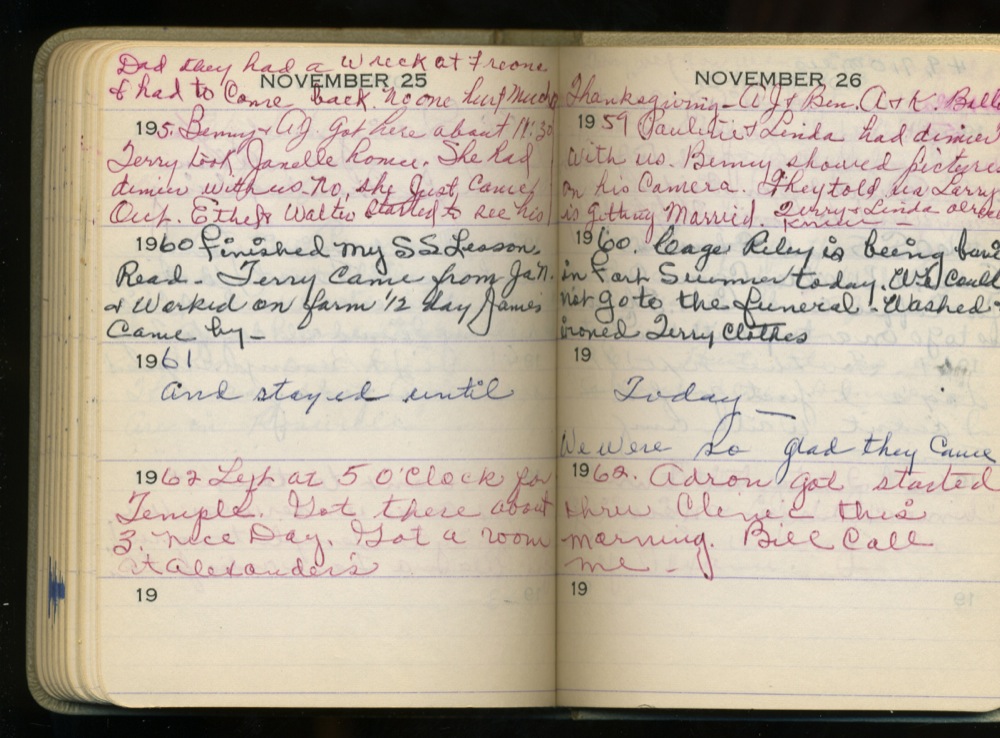 Dad they had a wreck at Friona
NOVEMBER 25
& had to Come back. No one hurt much
195. Benny & AJ. got here about 11:30
Terry took Janelle home. She had
dinner with us. No, she Just Came
Out. Ethel & Walter started to see his
1960 Finished My SS Lesson.
Read - Terry Came from Jan.
& Worked on farm 1/2 day James
Came by -
1961
And stayed until
1962 Left at 5 O'Clock for
Temple. Got there about
3. nice Day. Got a room
at Alexander's
19
NOVEMBER 26
Thanksgiving - AJ & Ben. A & K. Bill
1959 Pauline & Linda had dinner
with us. Benny showed pictures
on his Camera. They told us Larry
is getting Married. Terry & Linda already
knew -
1960. Cage Riley is being buri
in Fort Sumner today. We Could
not go to the funeral - Washed
ironed Terry Clothes
19
Today -
We Were so glad they Came
1962. Adron got started
thru Clinic this
morning. Bill Call
me -
19